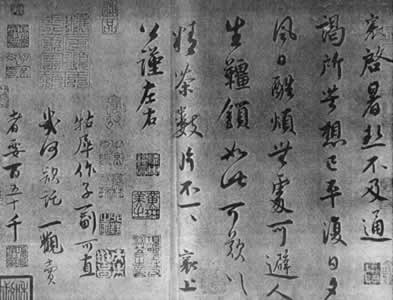 襄啓暑熱不及通
謁所苦想已平復日夕
風日酷煩無處可避人
生韁鎖如此可歎〻
精茶數片不一一襄上
公謹左右
牯犀作子一副可直
幾何欲託一觀賣
者要百五十千